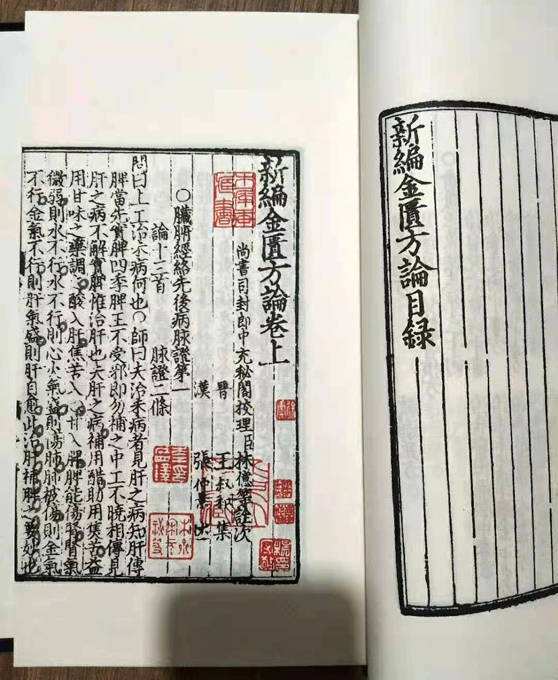 新編金匱方論目録
新編金匱方論卷上
尚書司封郎中充秘閣校理臣林億等詮次
晉 王叔和集
漢 張仲景述
○臟腑經絡先後病脉證第一
論十三首 脉證二條
問曰上工治未病何也○師曰夫治未病者見肝之病知肝傳
脾當先實脾四季脾王不受邪即勿補之中工不曉相傳見
肝之病不解實脾惟治肝也夫肝之病補用酸助用焦苦益
用甘味之藥調之酸入肝焦苦入心甘入脾脾能傷腎腎氣
微弱則水不行水不行則心火氣盛則傷肺肺被傷則金氣
不行金氣不行則肝氣盛則肝自愈此治肝補脾之要妙也